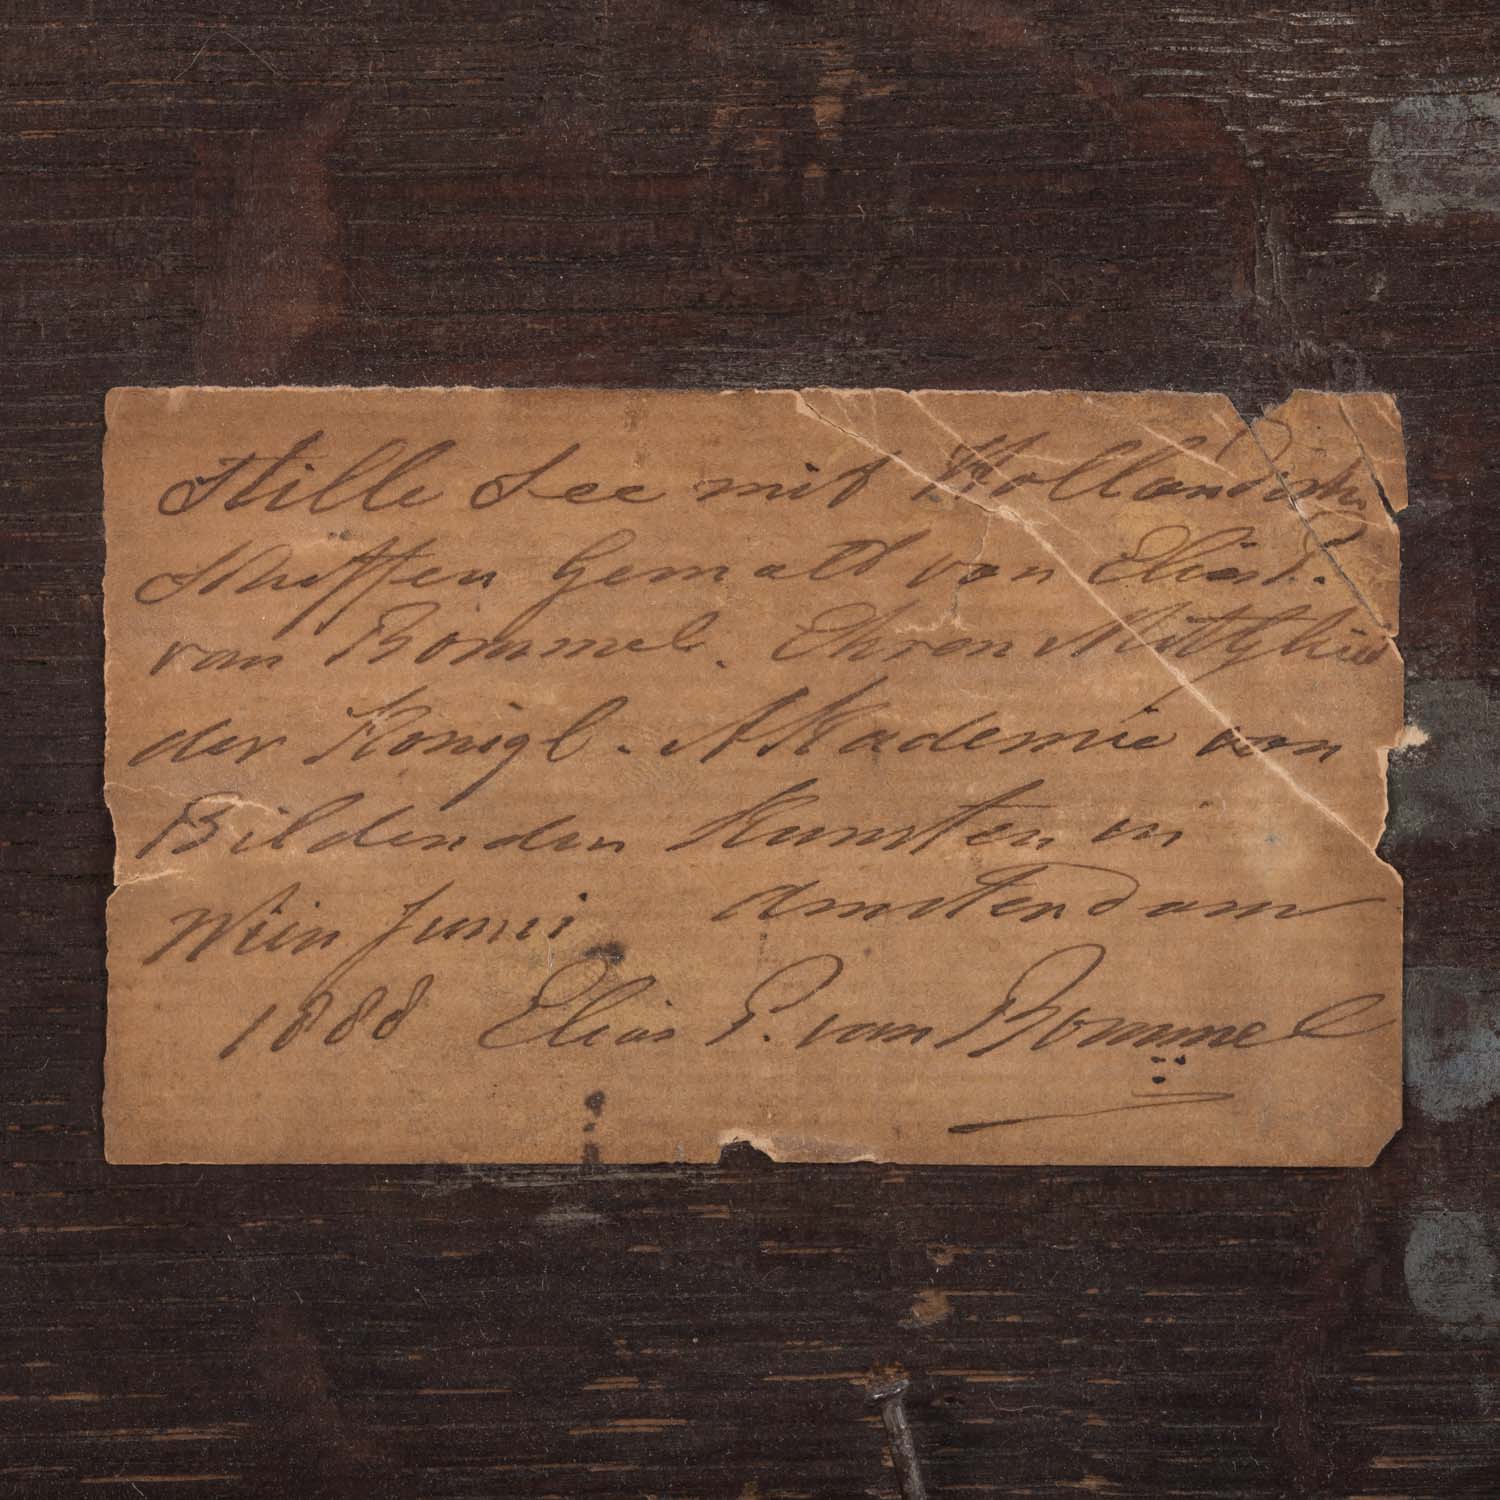 Stille See mit Hollandisch
Schiffen Gemalt von Elias P.
van Bommel. Ehren Mittglied
der Königl. Akademie van
Bildenden Kunsten in
Wien Junii Amsterdam
1888 Elias P. van Bommel